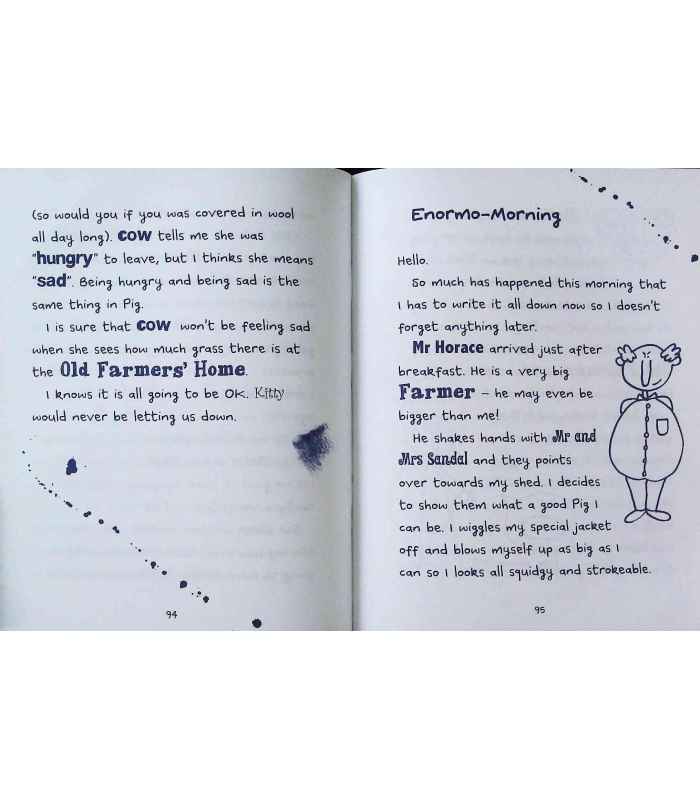 (so would you if you was covered in wool
all day long). COW tells me she was
"hungry" to leave, but I thinks she means
"sad". Being hungry and being sad is the
same thing in Pig.
I is sure that COW won't be feeling sad
when she sees how much grass there is at
the Old Farmers' Home.
I knows it is all going to be OK. Kitty
would never be letting us down.
94
Enormo-Morning
Hello.
So much has happened this morning that
I has to write it all down now so I doesn't
forget anything later.
Mr Horace arrived just after
breakfast. He is a very big
Farmer – he may even be
bigger than me!
He shakes hands with Mr and
Mrs Sandal and they points
over towards my shed. I decides
to show them what a good Pig I
can be. I wiggles my special jacket
off and blows myself up as big as I
can so I looks all squidgy and strokeable.
95